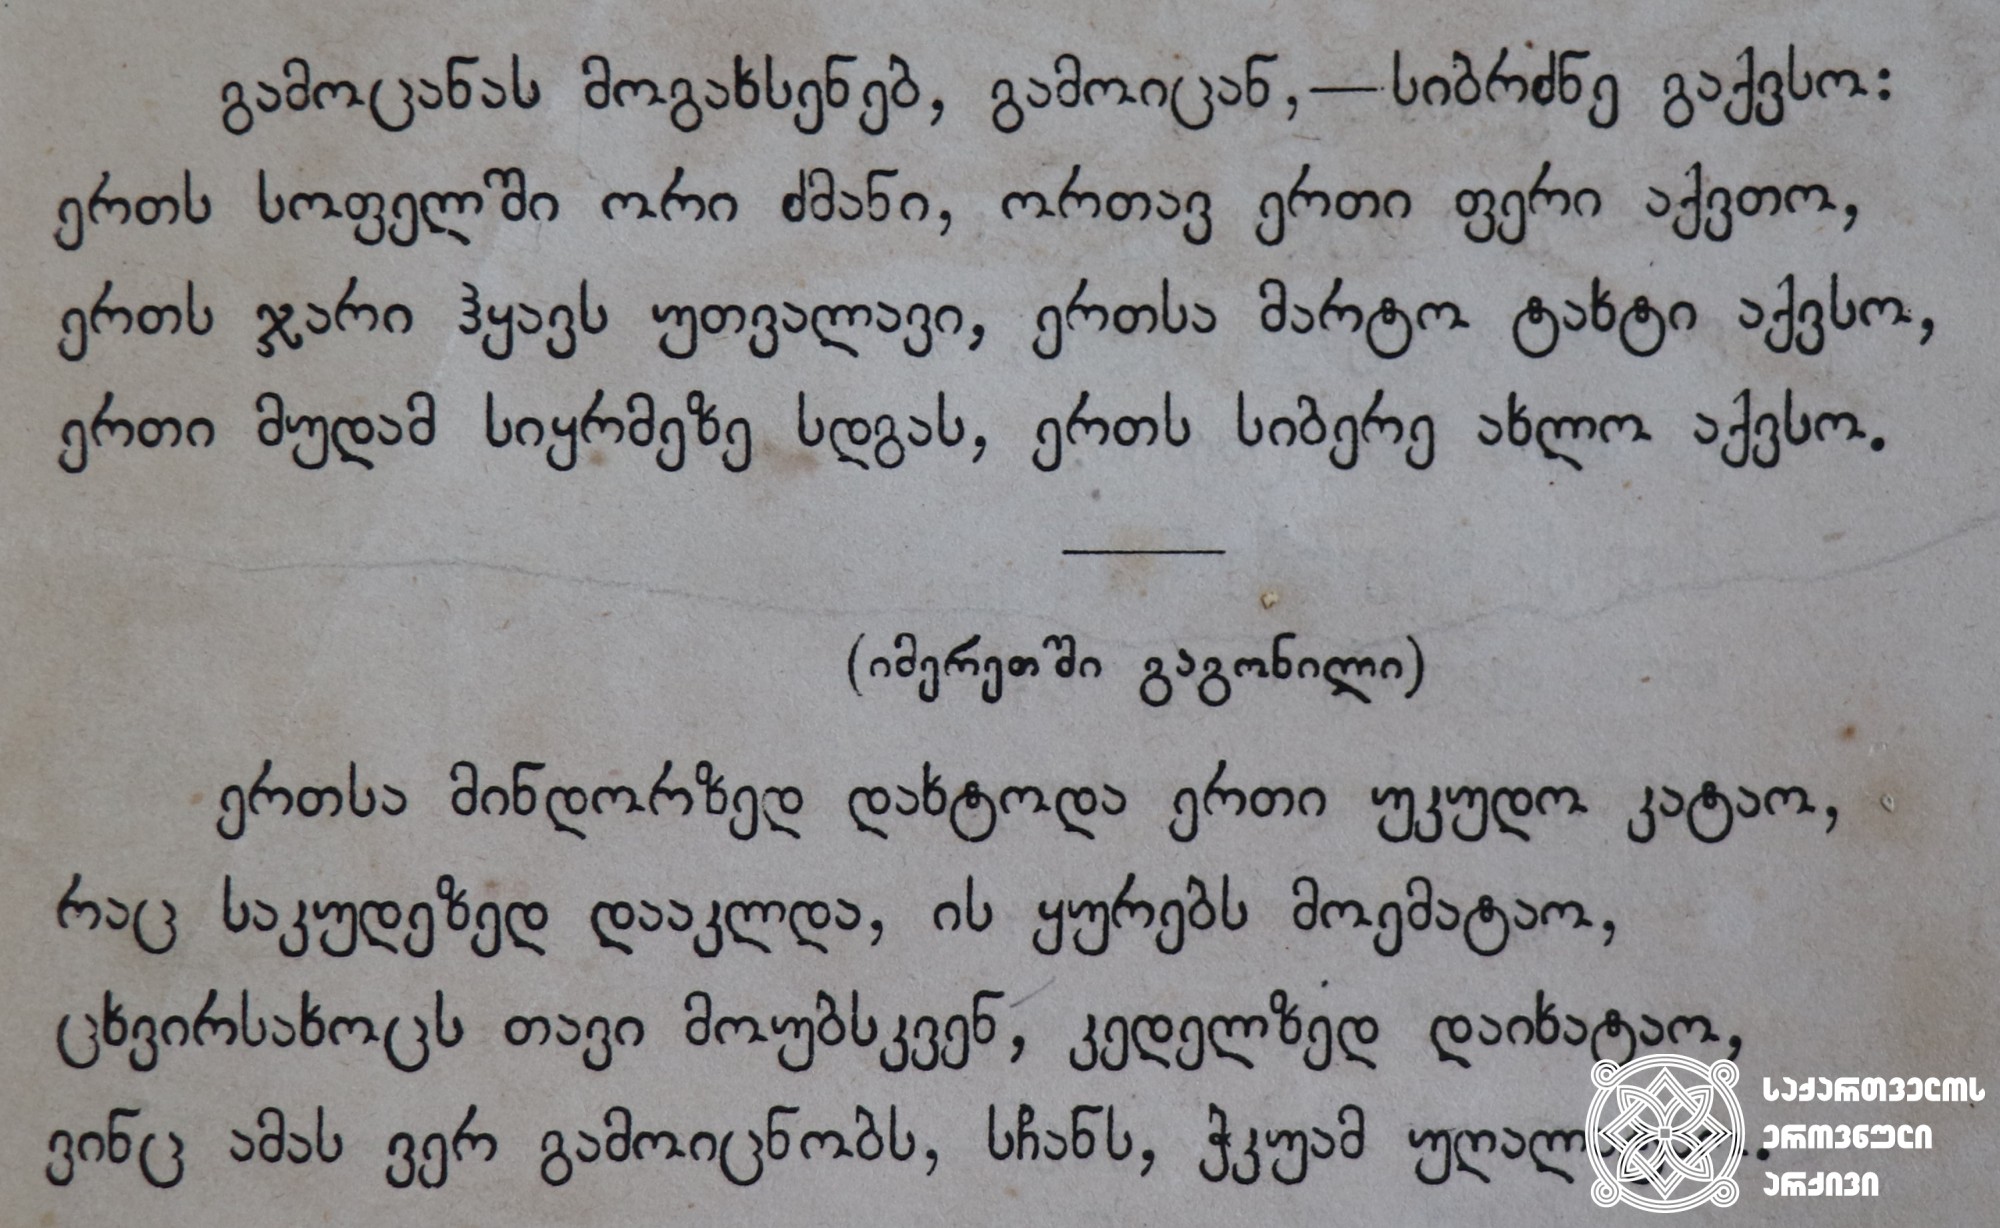 გამოცანას მოგახსენებ, გამოიცან,—სიბრძნე გაქვსო:
ერთს სოფელში ორი ძმანი, ორთავ ერთი ფერი აქვთო,
ერთს ჯარი ჰყავს უთვალავი, ერთსა მარტო ტახტი აქვსო,
ერთი მუდამ სიყრმეზე სდგას, ერთს სიბერე ახლო აქვსო.
(იმერეთში გაგონილი)
ერთსა მინდორზედ დახტოდა ერთი უკუდო კატაო,
რაც საკუდეზედ დააკლდა, ის ყურებს მოემატაო,
ცხვირსახოცს თავი მოუბსკვენ, კედელზედ დაიხატაო,
ვინც ამას ვერ გამოიცნობს, სჩანს, ჭკუამ
საქართველოს
ეროვნული
არქივი